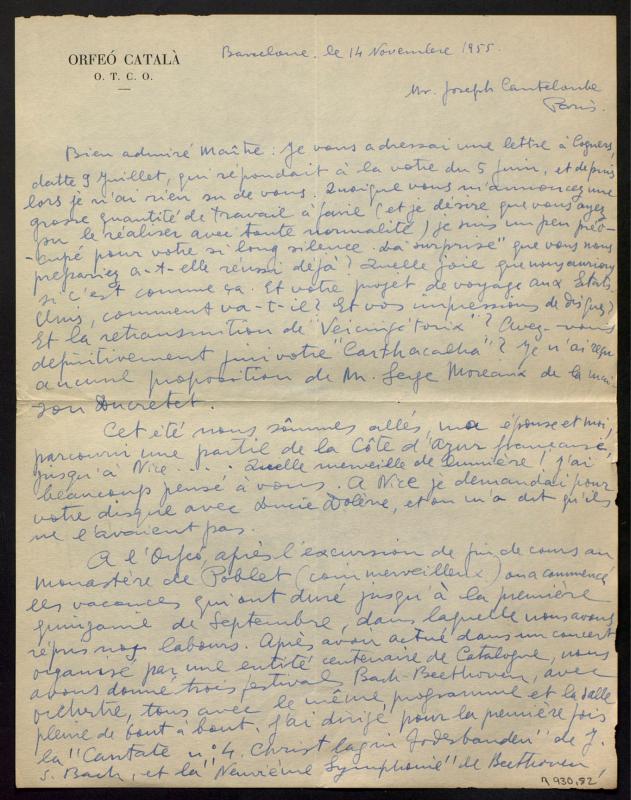 ORFEÓ CATALÀ
O. T. C. O.
Barcelone, le 14 Novembre 1955.
Mr. Joseph Canteloube
Paris.
Bien admiré Maître: Je vous adressai une lettre à
datte 9 Juillet, qui répondait à la votre du 5 juin, et depuis
lors je n'ai rien su de vous. Quoique vous m'annoncez une
grosse quantité de travail à faire (et je désire que vous ayez
pu le réaliser avec toute normalité) je suis un peu préo-
-cupé pour votre si long silence. "La surprise" que vous nous
prépariez a-t-elle réussi déjà? Quelle joie que nous aurions
si c'est comme ça. Et votre projet de voyage aux États
Unis, comment va-t-il? Et vos impressions de disques?
Et la retransmition de "Vercingétorix"? Avez-vous
définitivement fini votre "Carthacalha"? Je n'ai reçu
aucune proposition de Mr. Serge Moreaux de la mai-
son Ducretet.
Cet été nous sommes allés, ma épouse et moi,
parcourir une partie de la Côte d'Azur française,
jusqu'à Nice..... Quelle merveille de lumière! J'ai
beaucoup pensé à vous. A Nice je demandai pour
votre disque avec Lucie Dolène, et on m'a dit qu'ils
ne l'avaient pas.
A l'Orfeó, après l'excursion de fin de cours au
monastère de Poblet (coin merveilleux) on a commencé
les vacances qui ont duré jusqu'à la première
quinzaine de Septembre, dans laquelle nous avons
répris nos labours. Après avoir actué dans un concert
organisé par une entité centenaire de Catalogne, nous
avons donné trois festivals Bach-Beethoven, avec
orchestre, tous avec le même programme et la salle
pleine de bout à bout. J'ai dirigé pour la première fois
la "Cantate nº 4. Christ lag in Todesbanden" de J.
S. Bach, et la "Neuvième Symphonie" de Beethoven,
A 930,82